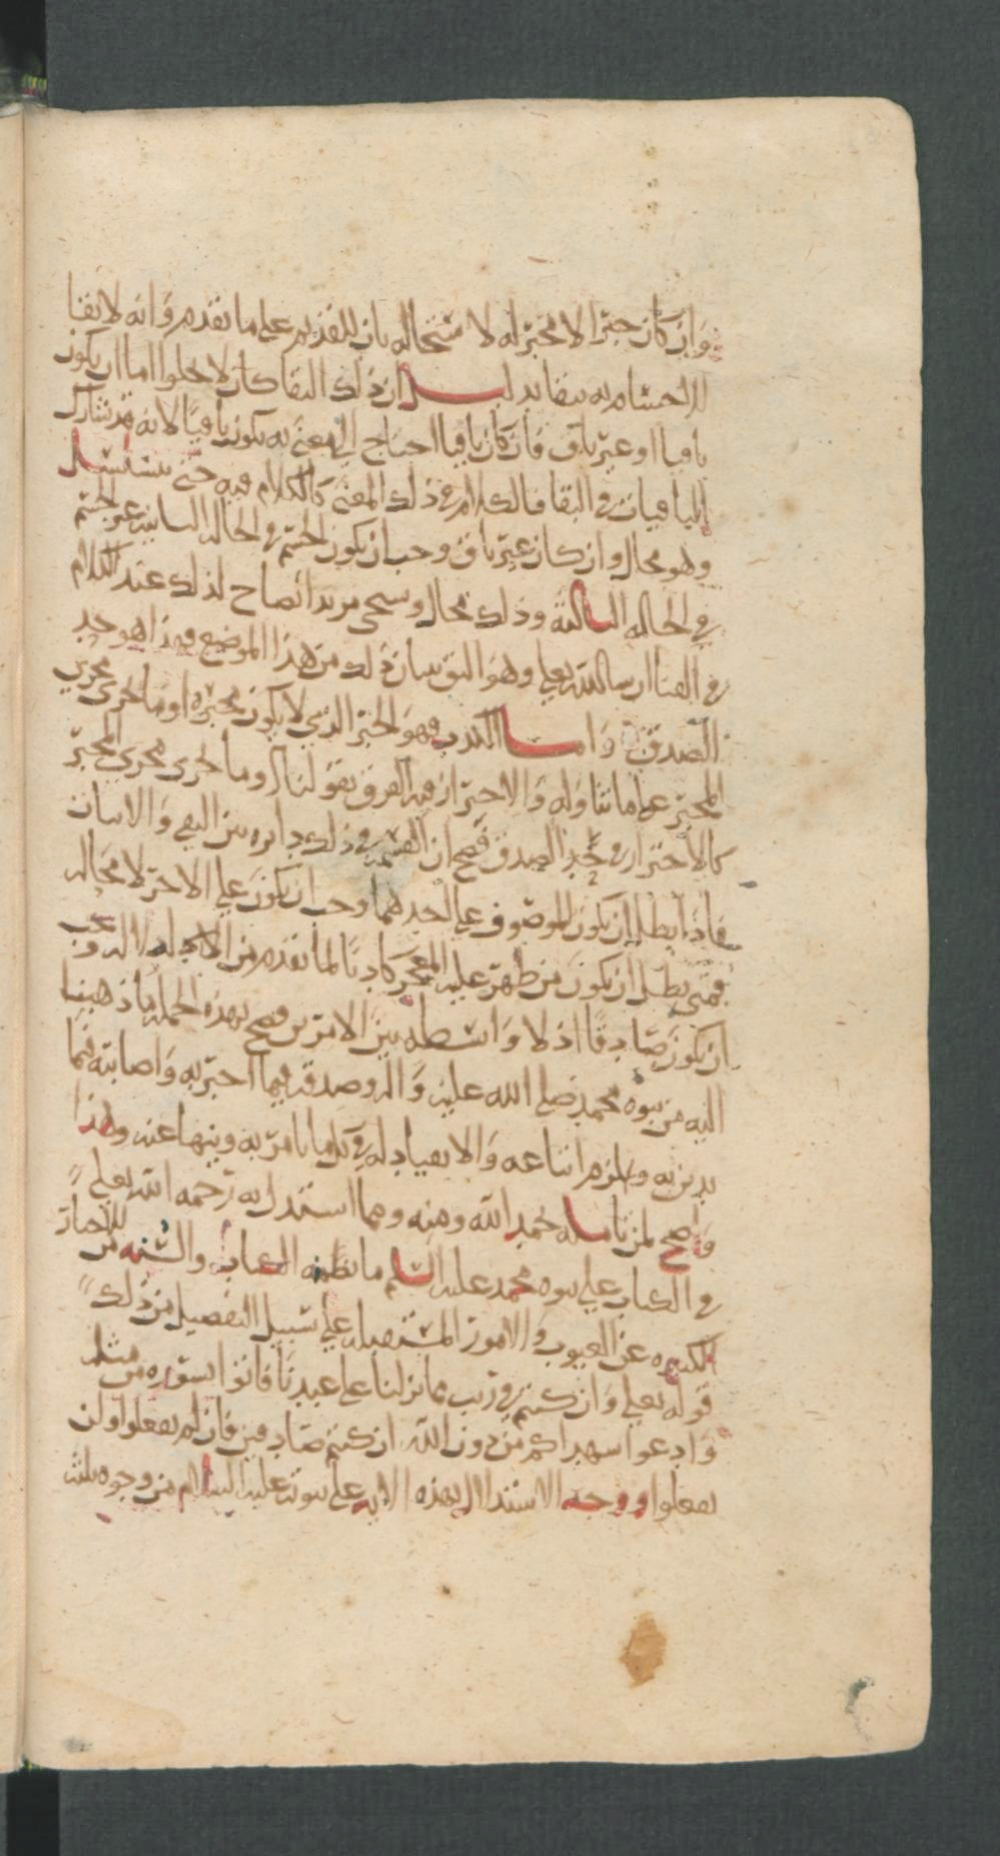 وان كان خبرا الا مخبر له لا ستحاله بان للقديم على ما تقدم وانه لا بقا
للاجسام به بيقا بدليل ان ذلك البقا كان لا يخلوا اما ان يكون
باقيا او غير باق فان كان باقيا احتاج الى معنى به يكون باقيا لانه قد شارك
الباقيات في البقا فالكلام في ذلك المعنى كالكلام فيه حتى يتسلسل
وهو محال وان كان غير باق وجب ان يكون الجسم في الحاله الثانيه غير الجسم
في الحاله الثالثة وذلك محال وسيجي مزيد ايضاح لذلك عند الكلام
في الفنا ان شا الله تعلى وهو اليق ببيان ذلك من هذا الموضع فهذا هو حد
الصدق واما الكذب فهو الخبر الذي لا يكون مخبره او ما جرى مجرى
المخبر على ما تناوله والاحتراز فيه الفرق بقولنا او ما جرى مجرى المخبر
كالاحتراز في حد الصدق فصح ان القسمه في ذلك دايره بين النفي والاثبات
فاذا بطل ان يكون الموصوف على احدهما وجب ان يكون على الاخر لا محاله
فمتى بطل ان يكون من ظهر عليه المعجز كاذبا لما تقدم من الادله وجب
ان يكون صادقا اذ لا واسطه بين الامرين فصح بهذه الجمله ما ذهبنا
اليه من نبوه محمد صلى الله عليه واله وصدقه فيما اخبر به واصابته فيما
يدين به ولزم اتباعه والانقياد له في كل ما يامر به وينها عنه وهذا
واضح لمن تامله بحمد الله ومنه ومما استدل به رحمه الله تعلى
في الكتاب على نبوه محمد عليه السلم ما نطق به الكتاب والسنه من الاخبار
الكثيره عن الغيوب والامور المستقبله على سبيل التفصيل من ذلك
قوله تعلى وان كنتم في ريب مما نزلنا على عبدنا فاتوا بسوره من مثله
وادعوا شهداكم من دون الله ان كنتم صادقين فان لم تفعلوا ولن
تفعلوا ووجه الاستدلال بهذه الايه على نبوته عليه السلام من وجوه ثلثه